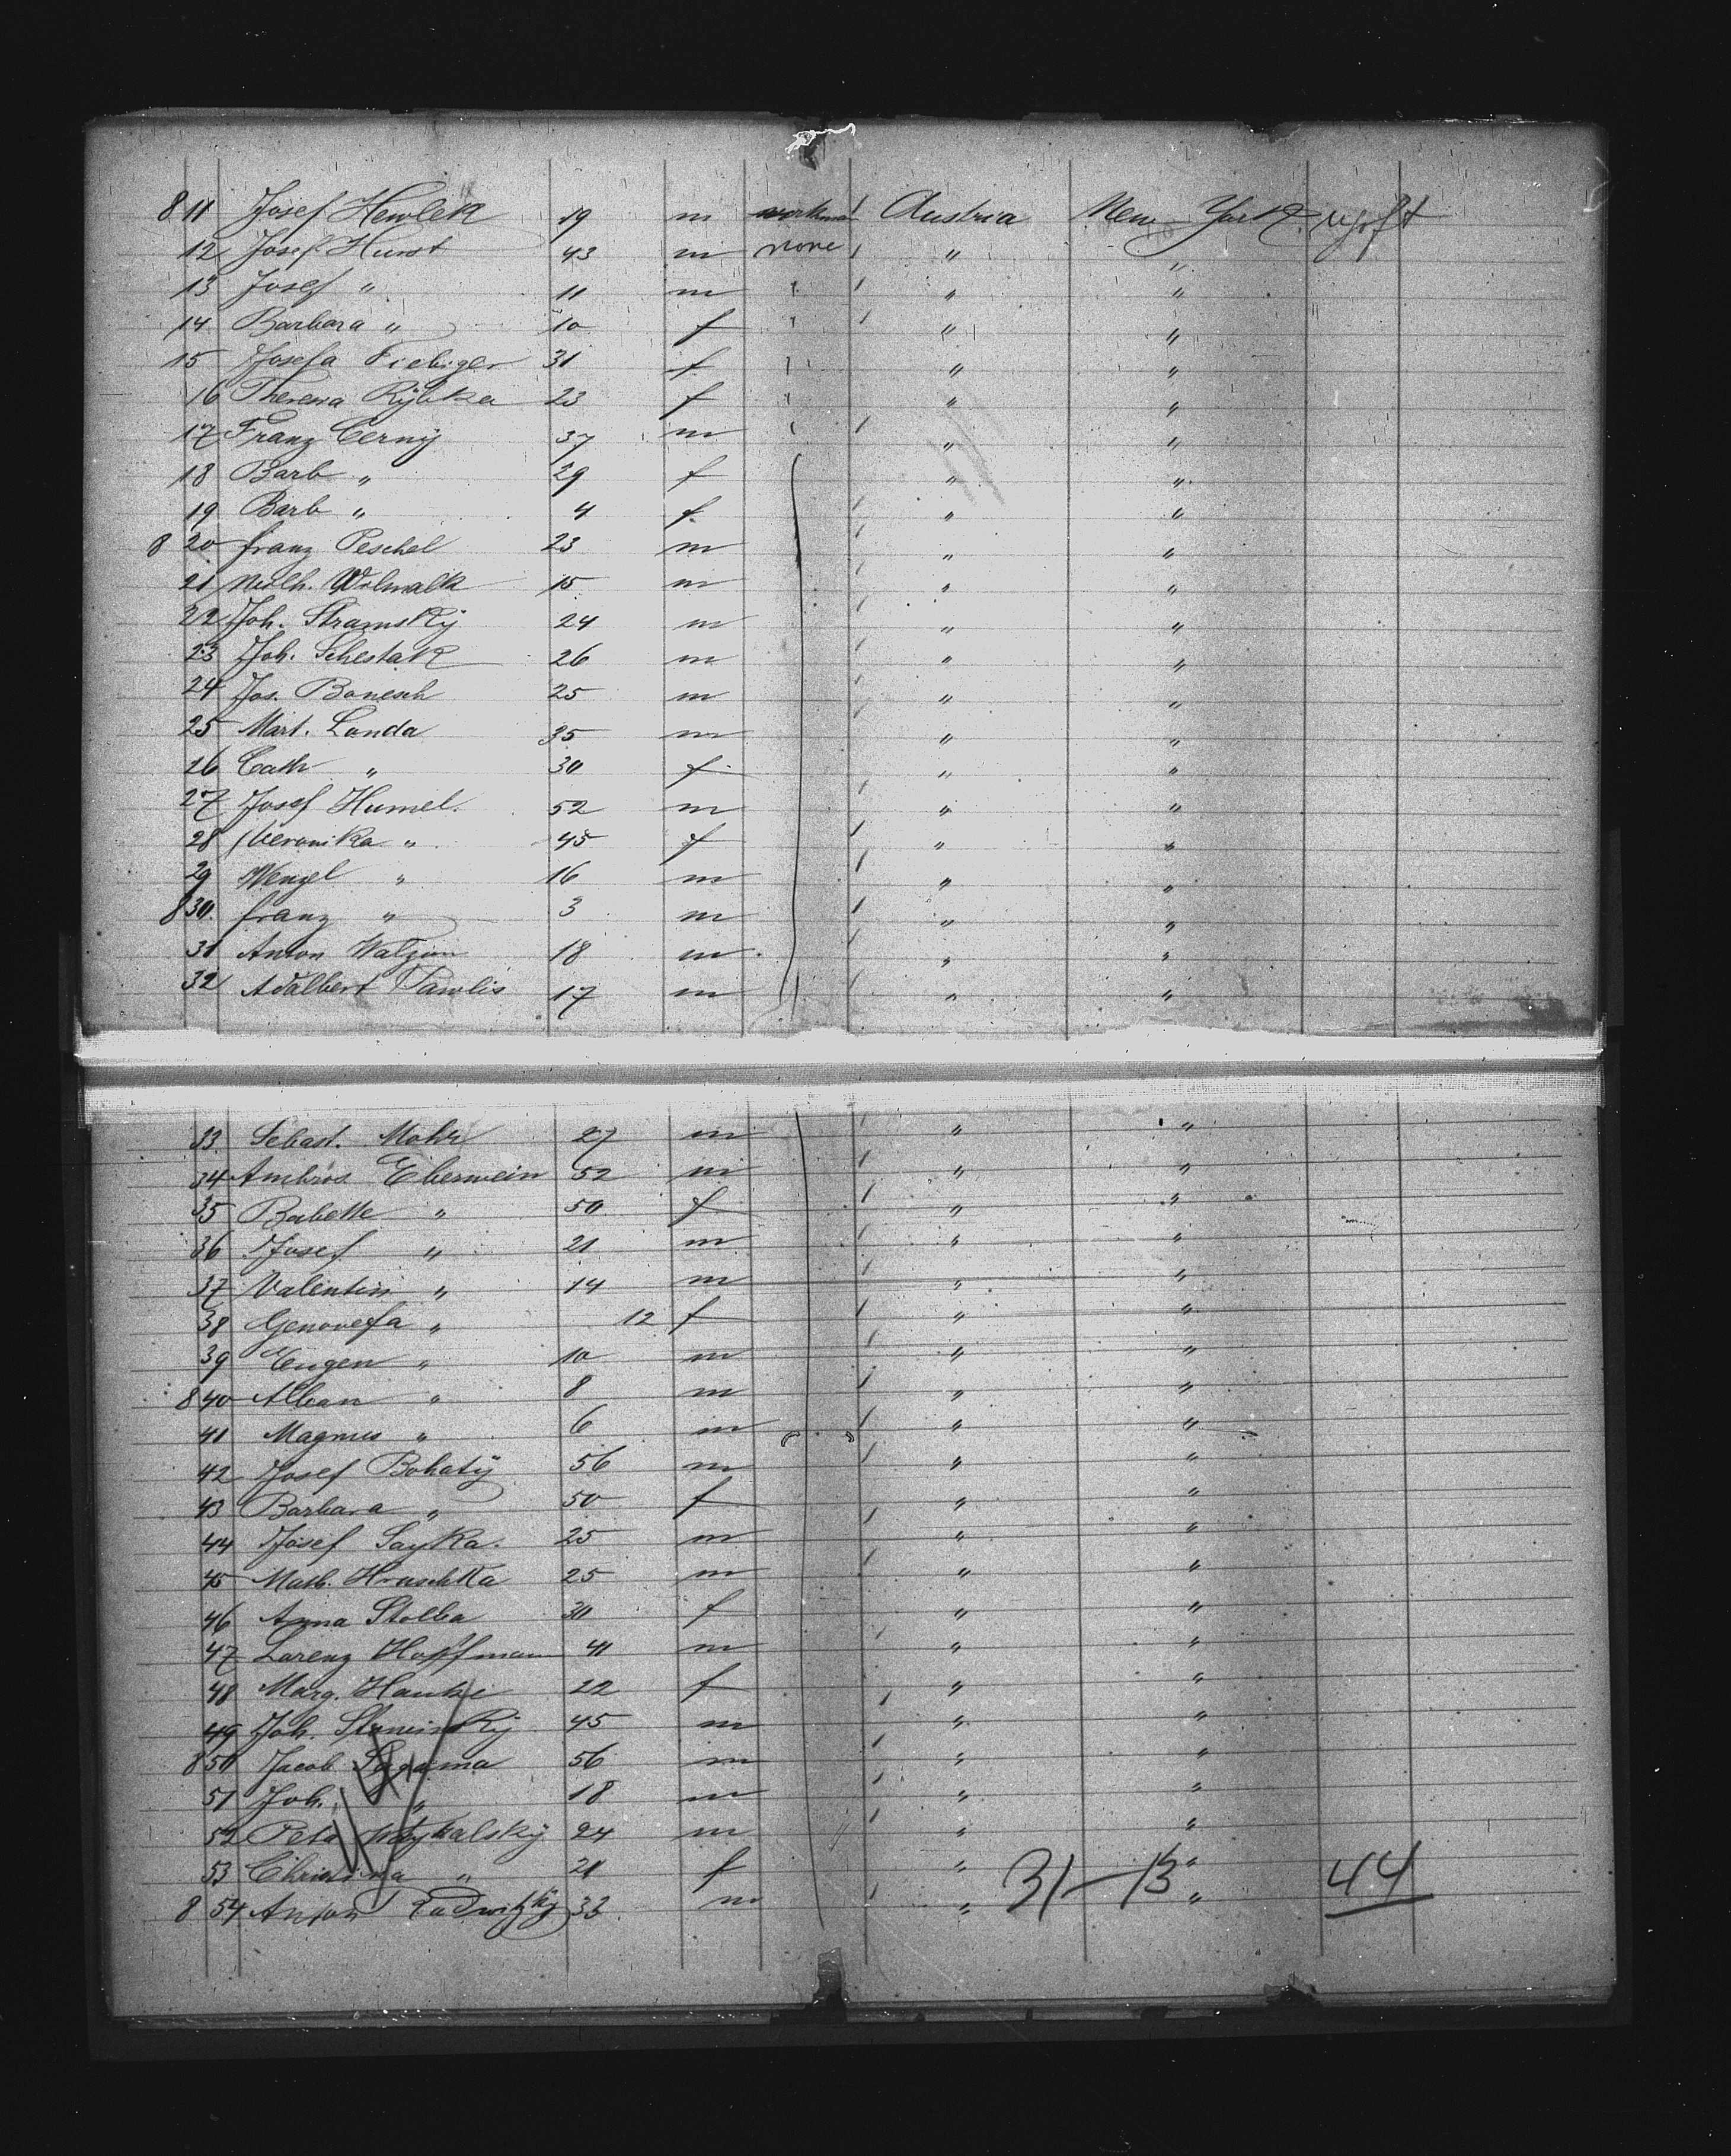 8 11 Josef Hewlek 19 m workman Austria New York upft
12 Josef Hurst 43 m none " "
13 Josef " 11 m " " "
14 Barbara " 10 f " " "
15 Josefa Fiebiger 31 f " " "
16 Theresia Rÿbka 23 f " " "
17 Franz Cernÿ 37 m " " "
18 Barb " 29 f " "
19 Barb " 4 f " "
8 20 franz Peschel 23 m " "
21 15 m " "
22 Joh. Stranskÿ 24 m " "
23 Joh. Schestak 26 m " "
24 Jos. Bonesch 25 m " "
25 Mart. Landa 35 m " "
26 Cath " 30 f " "
27 Josef Humel. 52 m " "
28 Veronika " 45 f " "
29 Wenzel " 16 m " "
8 30. franz " 3 m " "
31 Anton Watzion 18 m " "
32 Adalbert Pawlis 17 m " "
33. Sebast. Mohr 27 m " "
34 Ambros Eberwein 52 m " "
35 Babette " 50 f " "
36 Josef " 21 m " "
37 Valentin " 14 m " "
38 Genovefa " 12 f " "
39 Eugen " 10 m " "
8 40 Alban " 8 m " "
41 Magnus " 6 m " "
42 Josef Bohatÿ 56 m " "
43 Barbara " 50 f " "
44 Josef Sayka. 25 m " "
45 Math. Hruschka 25 m " "
46 Anna Stolba 30 f " "
47 Lorenz Hoffmann 41 m " "
48 Marg. Hanke 22 f " "
49 Joh. 45 m " "
8 50 Jacob 56 m " "
51 Joh. " 18 m " "
52 Peter 24 m " "
53 Christina " 21 f " "
8 54 Anton Radwitzkÿ 33 m " "
31–13 44